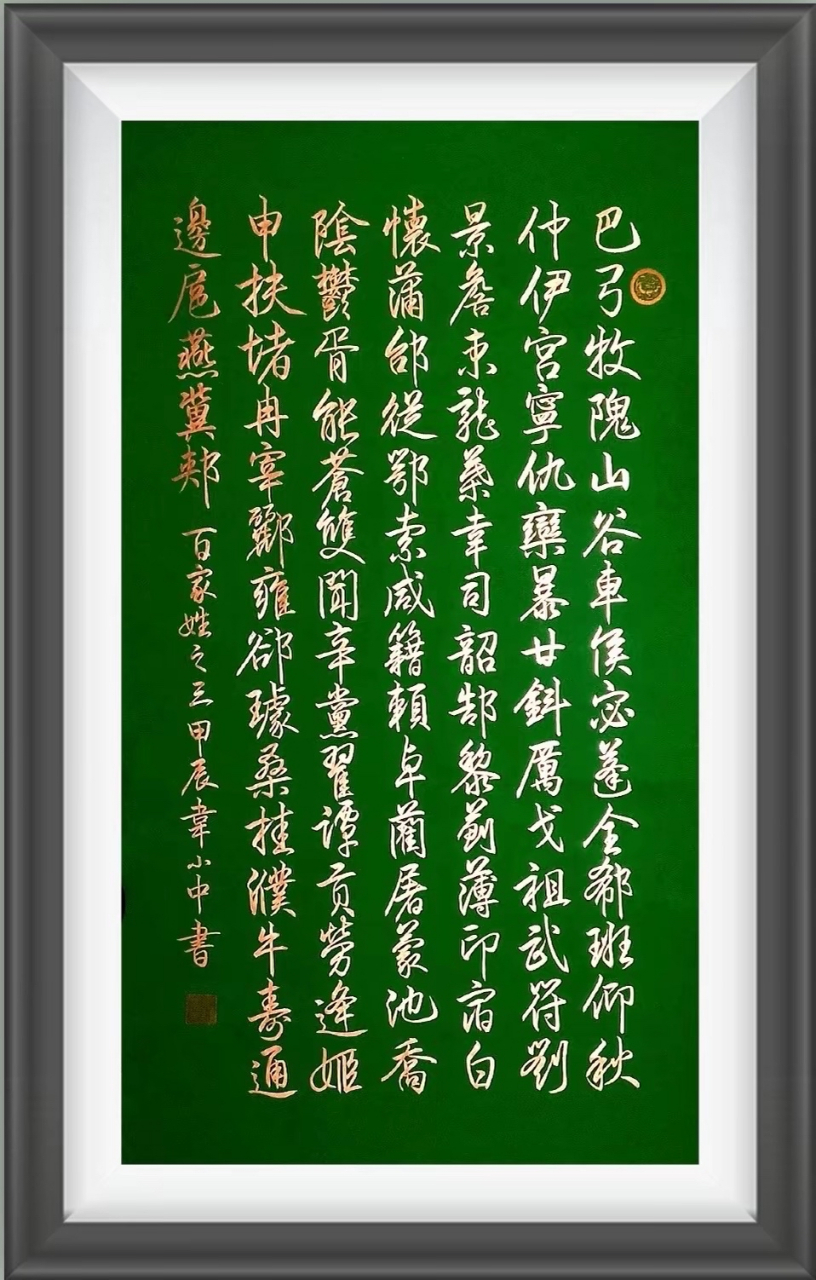 巴弓牧隗山谷車侯宓蓬全郗班仰秋
仲伊宮寧仇欒暴甘鈄厲戈祖武符劉
景詹束龍葉幸司韶郜黎薊薄印宿白
懷蒲邰從鄂索咸籍賴卓藺屠蒙池喬
陰鬱胥能蒼雙聞辛黨翟譚貢勞逄姬
申扶堵冉宰酈雍郤璩桑桂濮牛壽通
邊扈燕冀郟 百家姓之三甲辰韋小中書